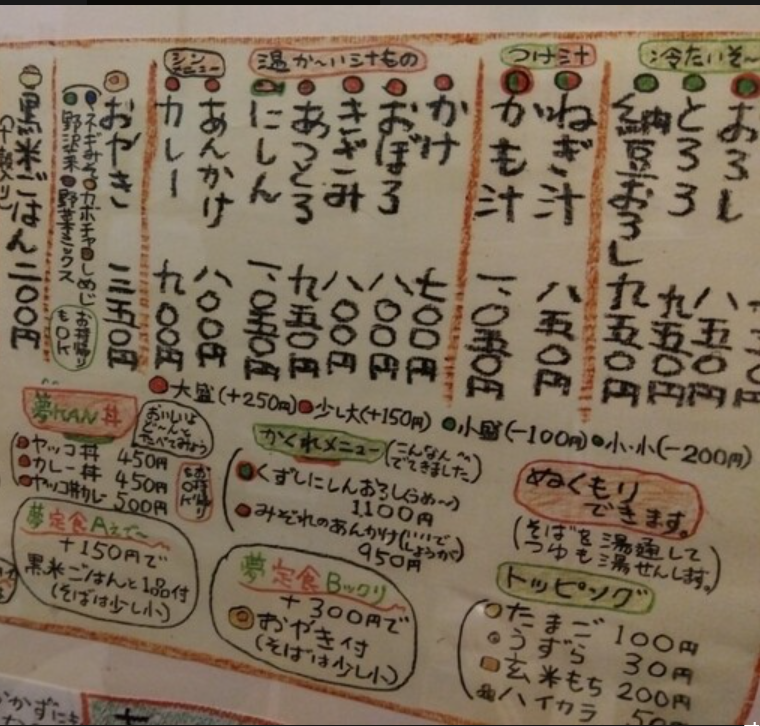 冷たいそ〜
おろし
とろろ 八五〇円
納豆おろし 九五〇円
つけ汁
ねぎ汁 八五〇円
かも汁 一、〇五〇円
温か〜い汁もの
かけ 七〇〇円
おぼろ 八〇〇円
きざみ 八〇〇円
あつとろ 九五〇円
にしん 一、〇五〇円
シン
メニュー
あんかけ 八〇〇円
カレー 九〇〇円
おやき 二五〇円
ネギみそ カボチャ しめじ
野沢菜 野菜ミックス
お持帰り
もOK
黒米ごはん 二〇〇円
大盛(+250円) 少し大(+150円) 小盛(-100円) 小・小(-200円)
夢KAN丼
おいしいよ
ど〜んと
たべてみよう
ヤッコ丼 450円
カレー丼 450円
ヤッコ丼カレー 500円
お持帰り
もOK
かくれメニュー
(こんなんへ
でてきました)
くずしにしんおろし(うめ〜)
1100円
みぞれのあんかけ(いいで
しょうが)
950円
ぬくもり
できます。
(そばを湯通して
つゆも湯せんします。)
夢定食Aえ〜
+150円で
黒米ごはんと1品付
(そばは少し小)
夢定食Bックリ
+300円で
おやき付
(そばは少し小)
トッピング
たまご 100円
うずら 30円
玄米もち 200円
ハイカラ
かずにも